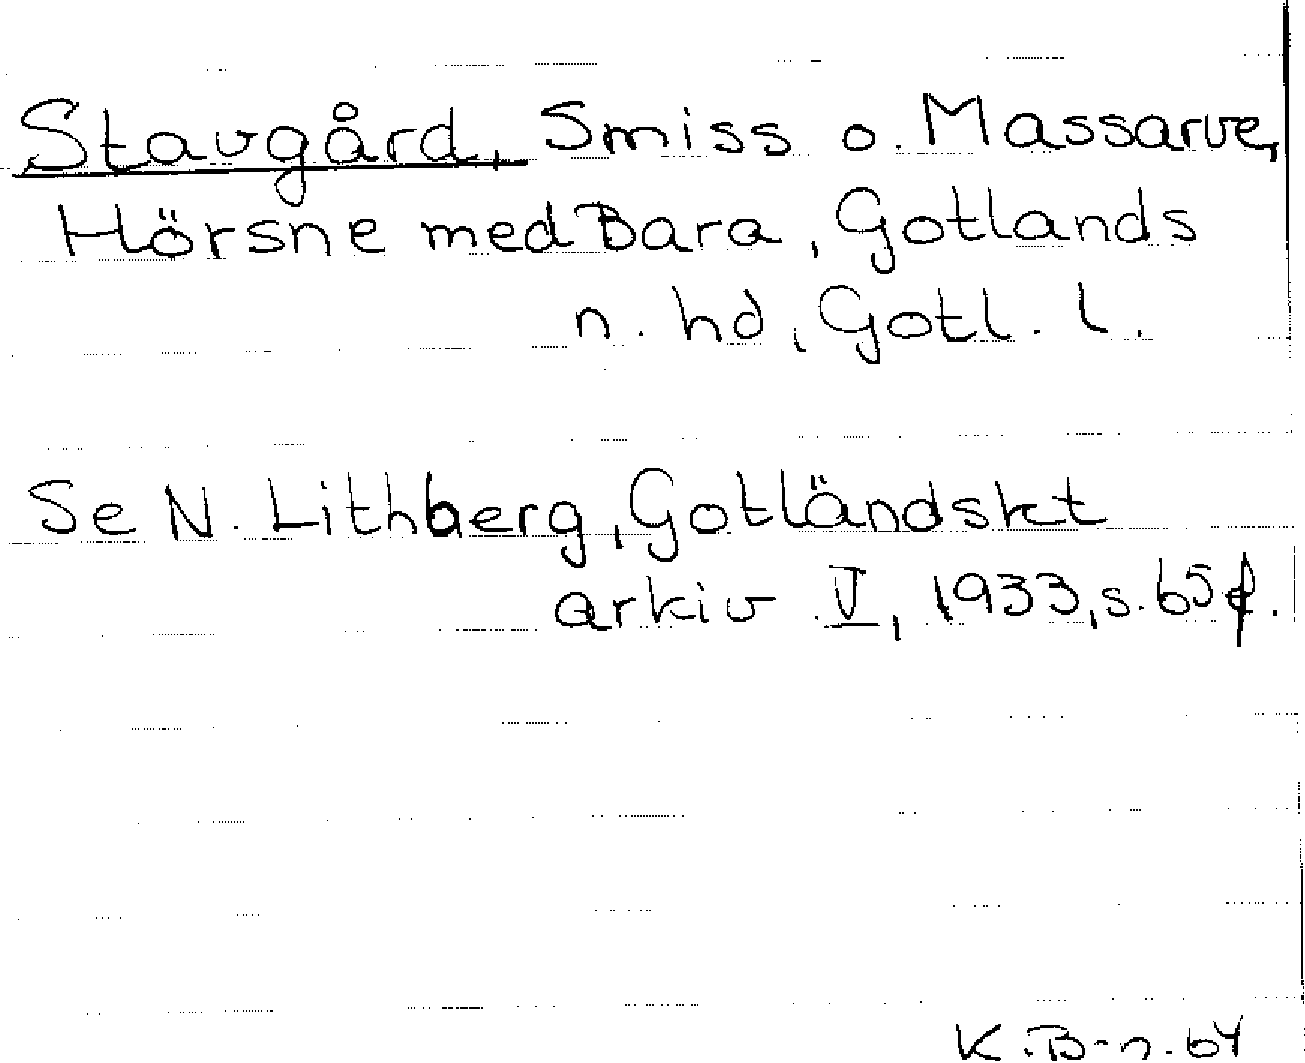 Stavgård, Smiss o. Massarve,
Hörsne med Bara, Gotlands
n. hd, Gotl. l.
Se N. Lithberg, Gotländskt
arkiv V, 1933, s. 65 f.
K. B-n. 64